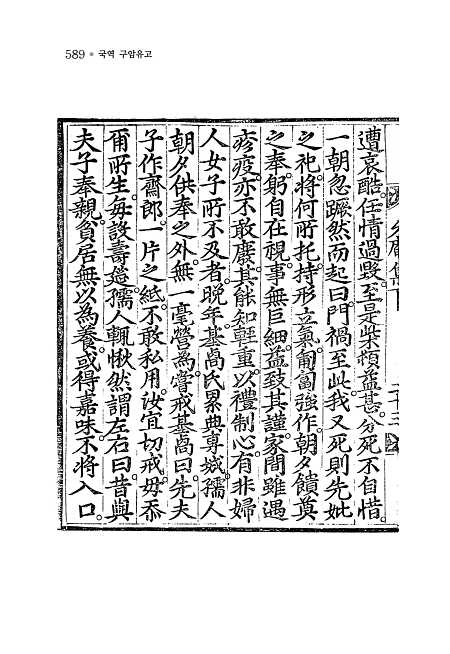 589 • 국역 구암유고
遭哀酷。任情過毁。至是柴頓益甚。分死不自惜。
一朝忽蹶然而起曰。門禍至此。我又死則先妣
之祀。將何所托。持形立氣。匍匐強作。朝夕饋奠
之奉。躬自在視。事無巨細。益致其謹。家間雖遇
疹疫。亦不敢廢。其能知輕重。以禮制心。有非婦
人女子所不及者。晩年。基卨氏累典專城。孺人
朝夕供奉之外。無一毫營爲。嘗戒基卨曰。先夫
子作齋郞。一片之紙。不敢私用。汝宜切戒。毋忝
爾所生。每設壽筵。孺人輒愀然謂左右曰。昔與
夫子奉親。貧居無以爲養。或得嘉味。不將入口。